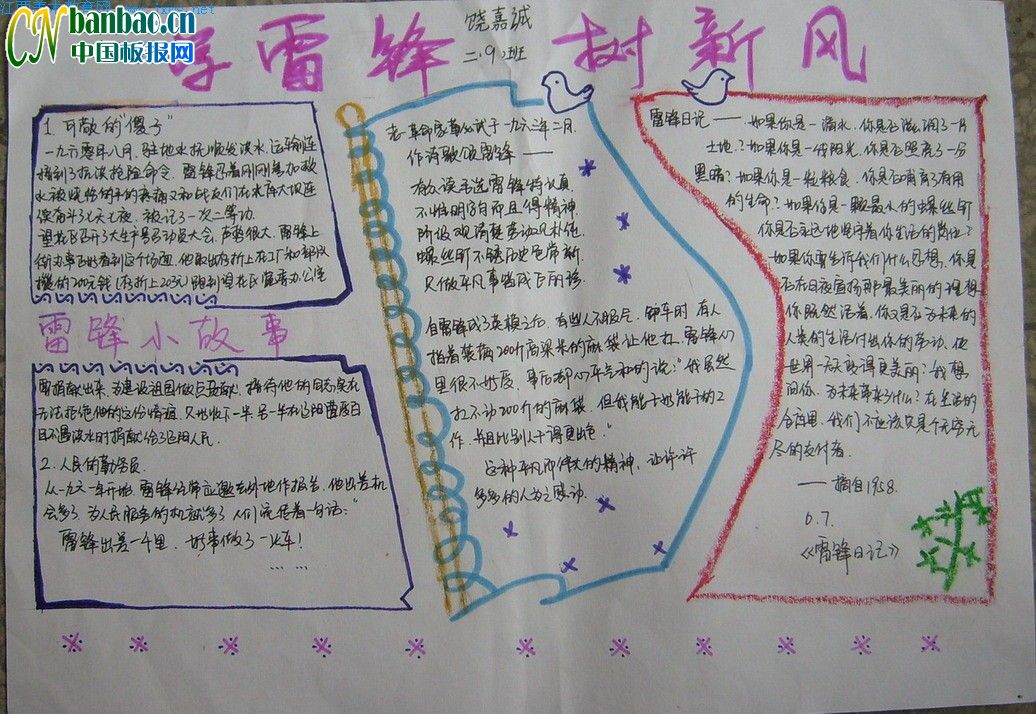 CN banbao.cn
中国板报网
学雷锋 树新风
饶嘉诚
二.9.班
1. 可敬的"傻子"
一九六零年八月,驻地
接到了抗洪抢险命令,雷锋忍着刚刚
被烧伤的手的疼痛又和战友们在水库大坝连
续奋斗了七天七夜,被记了一次二等功.
望花区召开了大生产号召动员大会,声势很大,雷锋上
街办事正好看到这个场面,他取出存折上在工厂和部队
攒的200元钱(存折上203元)跑到望花区党委办公室
雷锋小故事
要捐献出来,为建设祖国做点贡献,接待他的同志实在
无法拒绝他的这份情谊,只好收下一半.另一半在辽阳遭受百
年不遇洪水时捐献给了辽阳人民.
2. 人民的勤务员.
从一九六一年开始,雷锋经常应邀去外地作报告,他出差机
会多了,为人民服务的机会就多了,人们流传着一句话:"
雷锋出差一千里,好事做了一火车!
... ...
老一革命家董必武于一九六三年二月,
作诗歌颂雷锋——
有众读毛选,雷锋特认真
不惟明字句,而且得精神.
阶级观清楚,劳动风朴纯.
螺丝钉不锈,历史色常新.
只做平凡事,皆成巨丽珍.
自雷锋成了英模之后,有些人不服气,卸车时,有人
指着装满200斤高粱米的麻袋让他扛,雷锋心
里很不好受,事后却心平气和的说:"我虽然
扛不动200斤的麻袋,但我能干好能干的工
作,并且比别人干得更出色."
这种平凡而伟大的精神,让许许
多多的人为之感动.
雷锋日记——如果你是一滴水,你是否滋润了一片
土地?如果你是一线阳光,你是否照亮了一分
黑暗?如果你是一粒粮食,你是否哺育了有用
的生命?如果你是一颗最小的螺丝钉
你是否永远地坚守着你生活的岗位?
如果你要告诉我们什么思想,你是
否在日夜宣扬那最美丽的理想
你既然活着,你又是否为未来的
人类的生活付出你的劳动,使
世界一天天变得更美丽?我想
问你,为未来带来了什么?在生活的
仓库里,我们不应该只是个无穷无
尽的支付者.
——摘自1958.
6.7.
《雷锋日记》